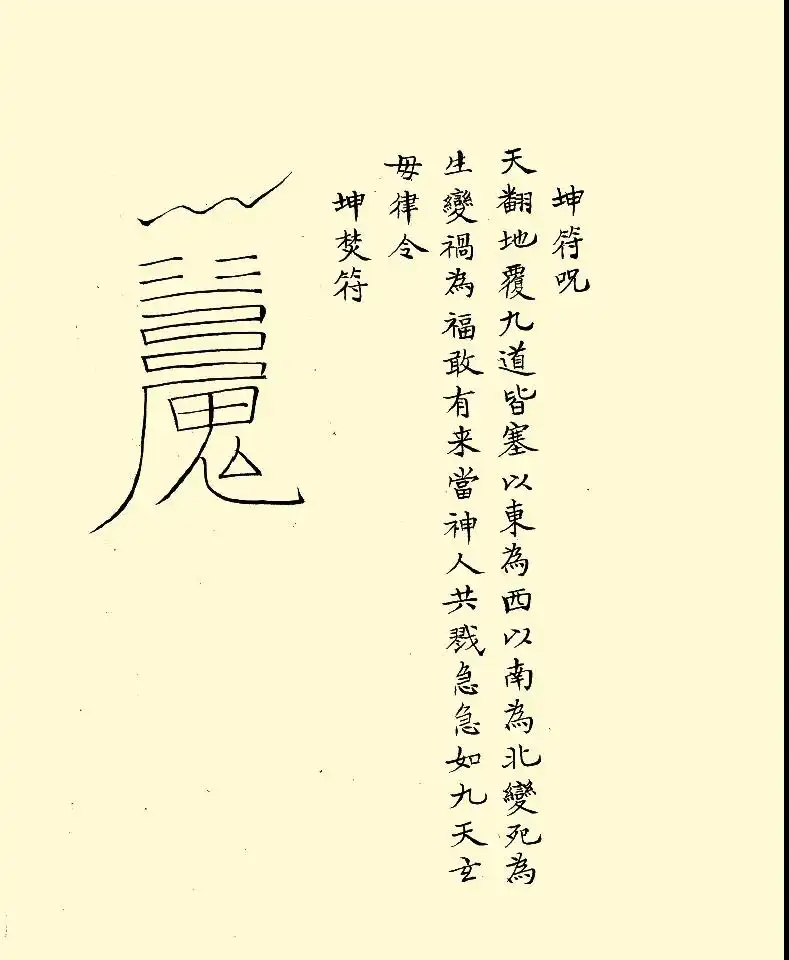 坤符呪
天翻地覆九道皆塞以東為西以南為北變死為
生變禍為福敢有来當神人共戮急急如九天玄
毋律令
坤焚符